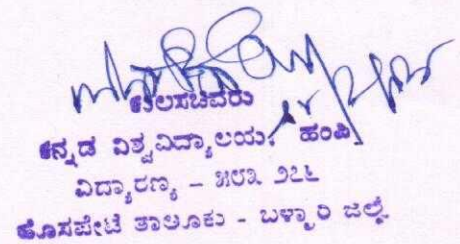 ಕುಲಸಚಿವರು
ಕನ್ನಡ ವಿಶ್ವವಿದ್ಯಾಲಯ, ಹಂಪಿ
ವಿದ್ಯಾರಣ್ಯ - ೫೮೩ ೨೭೬
ಹೊಸಪೇಟೆ ತಾಲೂಕು - ಬಳ್ಳಾರಿ ಜಿಲ್ಲೆ.